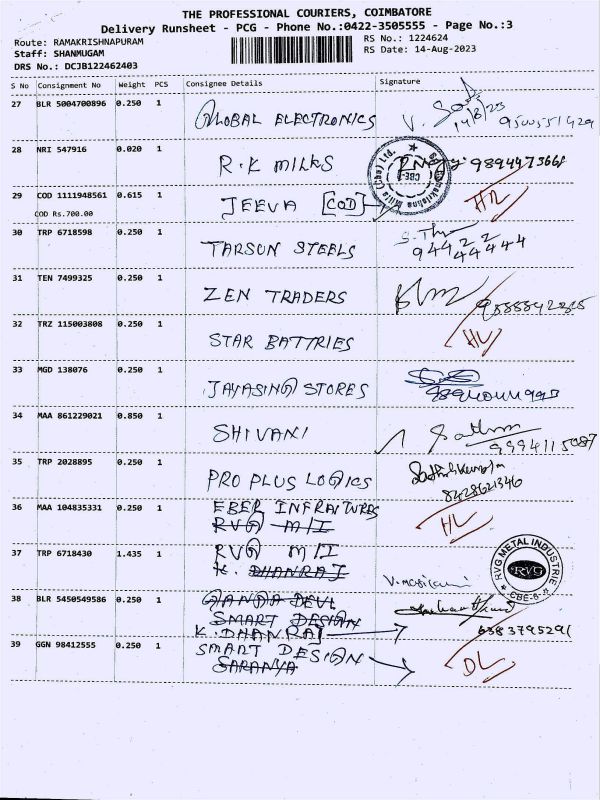 THE PROFESSIONAL COURIERS, COIMBATORE
Delivery Runsheet - PCG - Phone No.:0422-3505555 - Page No.:3
Route: RAMAKRISHNAPURAM RS No.: 1224624
Staff: SHANMUGAM RS Date: 14-Aug-2023
DRS No.: DCJB122462403
S No Consignment No Weight PCS Consignee Details Signature
27 BLR 5004700896 0.250 1 GLOBAL ELECTRONICS
14/8/23 9500551429
28 NRI 547916 0.020 1 R.K MILKS
29 COD 1111948561 0.615 1 JEEVA [COD]
COD Rs.700.00
30 TRP 6718598 0.250 1 TARSON STEELS
94422
44444
31 TEN 7499325 0.250 1 ZEN TRADERS
32 TRZ 115003808 0.250 1 STAR BATTRIES HL
33 MGD 138076 0.250 1 JAYASING STORES
34 MAA 861229021 0.850 1 SHIVANI
9994115087
35 TRP 2028895 0.250 1 PRO PLUS LOGICS
8428621346
36 MAA 104835331 0.250 1 EBER INFRATURES
RVG M/I HL
37 TRP 6718430 1.435 1 RVG M/I
K. DHANRAJ
RVG METAL INDUSTRIE
RVG
CBE-6
38 BLR 5450549586 0.250 1
SMART DESIGN
K. DHANRAJ 6383795291
39 GGN 98412555 0.250 1 SMART DESIGN
SARANYA DL